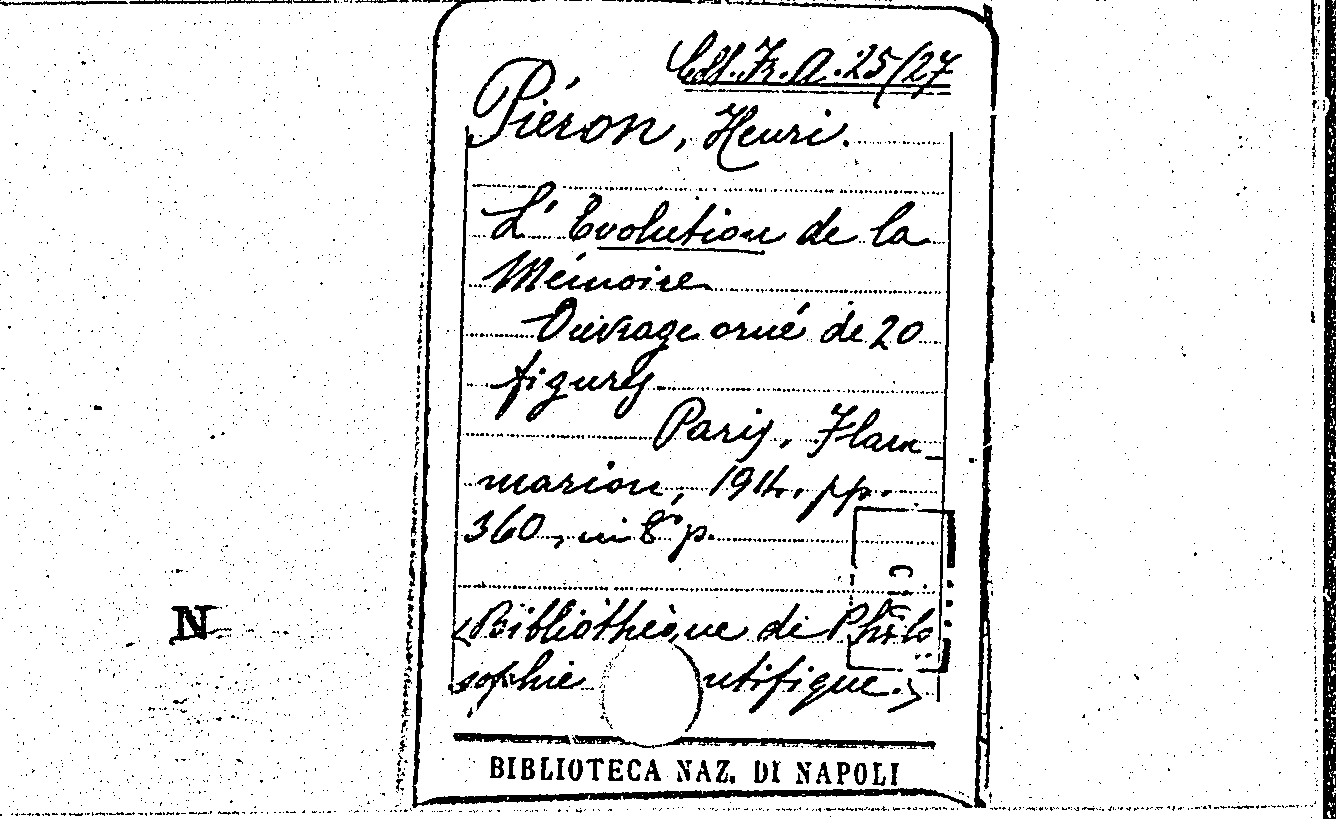 Coll. Fr. A. 25/27
Piéron, Henri.
L' Evolution de la
Mémoire
Ouvrage orné de 20
figures.
Paris, Flam-
marion, 1914. pp.
360, in 8° p.
<Bibliothèque de Philo
sophie ntifique.>
N
BIBLIOTECA NAZ. DI NAPOLI